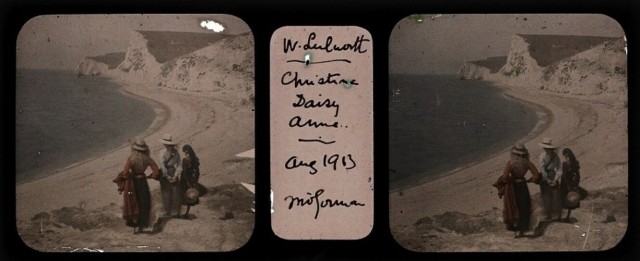 W. Lulworth
Christina
Daisy
Anne..
Aug 1913
McGorman